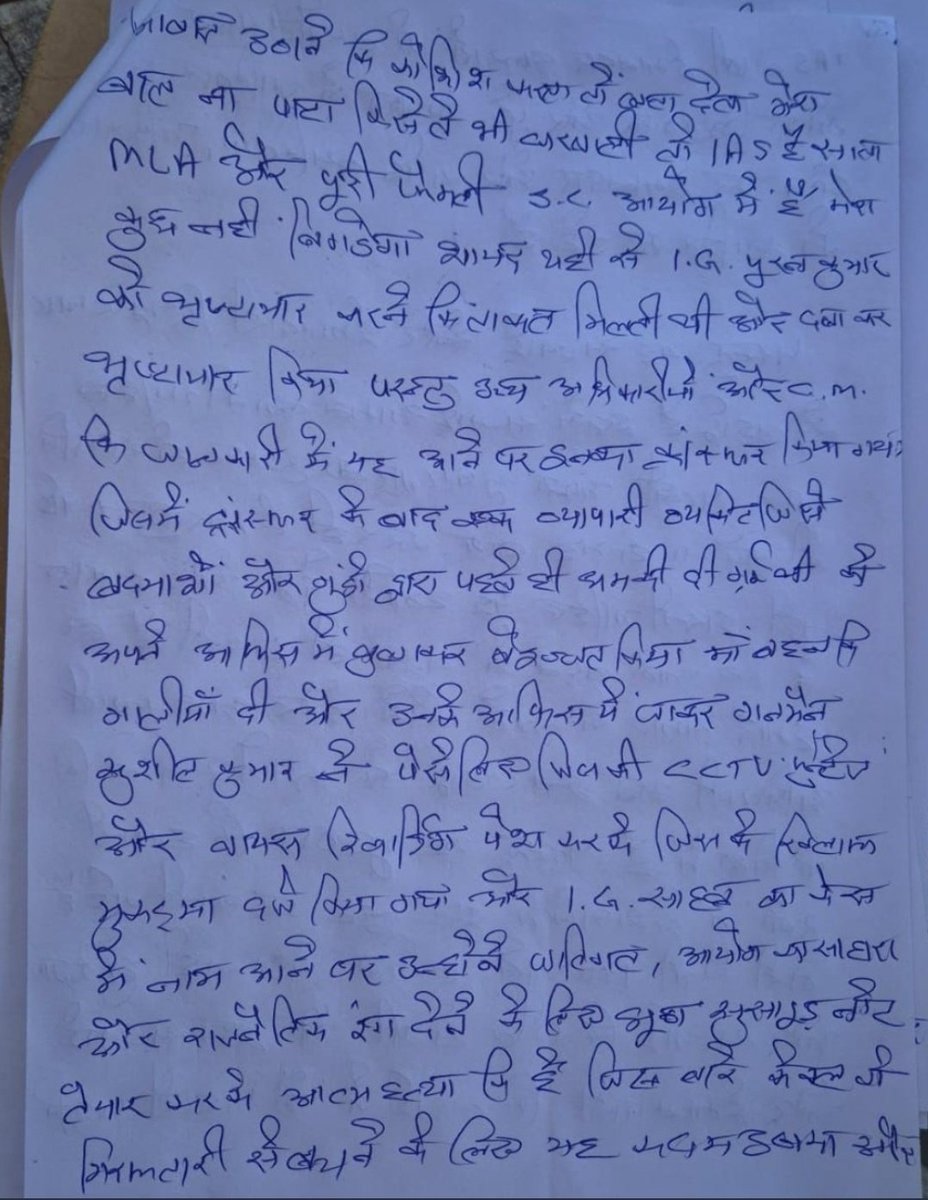 आवाज उठाने कि कोशिश करता तो कहा देता मेरा
बाल ना पाटा किसेते भी घरवाली तो IAS है साला
MLA और पूरी फैमली S.C. आयोग में है मेरा
कुछ नही बिगडेगा शायद यही से I.G. पुरन कुमार
को भ्रष्टाचार करने कि ताकत मिलती थी और दबा कर
भ्रष्टाचार किया परन्तु उच्च अधिकारीयों और C.M.
कि जानकारी में यह आने पर इनका ट्रांसफर किया गया
जिसमें ट्रांसफर के बाद एक व्यापारी व्यक्ति जिसे
बदमाशों और गुंडो द्वारा पहले ही धमकी दी गई थी को
अपने आफिस में बुलाकर बेइज्जत किया माँ बहन कि
गालीयाँ दी और उनके आफिस में जाकर गनमैन
सुशील कुमार ने पैसे लिए जिसकी CCTV फुटेज
और वायस रिकार्डिंग पेश कर दी जिस के खिलाफ
मुकद्दमा दर्ज किया गया और I.G. साहब का केस
में नाम आने पर उन्होने जातिगत, आयोग का सहारा
और राजनैतिक रंग देने के लिए झूठा सुसाइड नोट
तैयार करके आत्महत्या कि है जिस बारे केवल जी
गिरफ्तारी से बचने के लिए यह कदम उठाया और